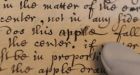 in the matter of the
center, not in any sid
Doo this apple fall
the center: if
st be in propor
the apple draw